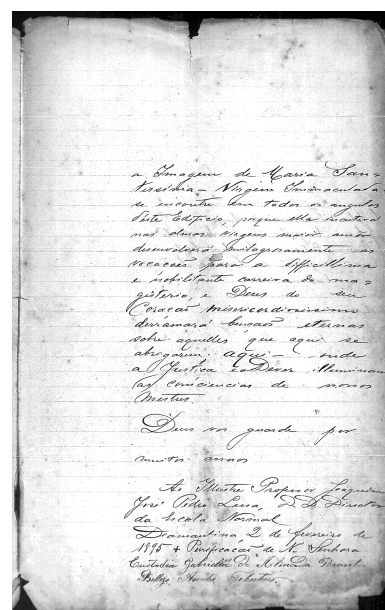 a Imagem de Maria San-
tissima - Virgem Immaculata
se encontre em todos os angulos
deste Edificio, porque ella
nas almas virgens maior amor
desenvolverá milagrosamente as
vocacões para a difficillima
e nobilitante carreira do ma-
gisterio, e Deus do seu
Coração misericordiosissimo
derramará bençaõs eternas
sobre aquelles que aqui se
abrigarem: aqui - onde
a Justiça e o Dever illuminam
as consciencias de nossos
mestres.
Deus vos guarde por
muitos annos
Ao Illustre Professor Joaquim
José Pedro Lessa, D. D. Director
da Escola Normal
Diamantina 2 de fevereiro de
1895 + Purificacão de N. Senhora
Custodia Gabriella de